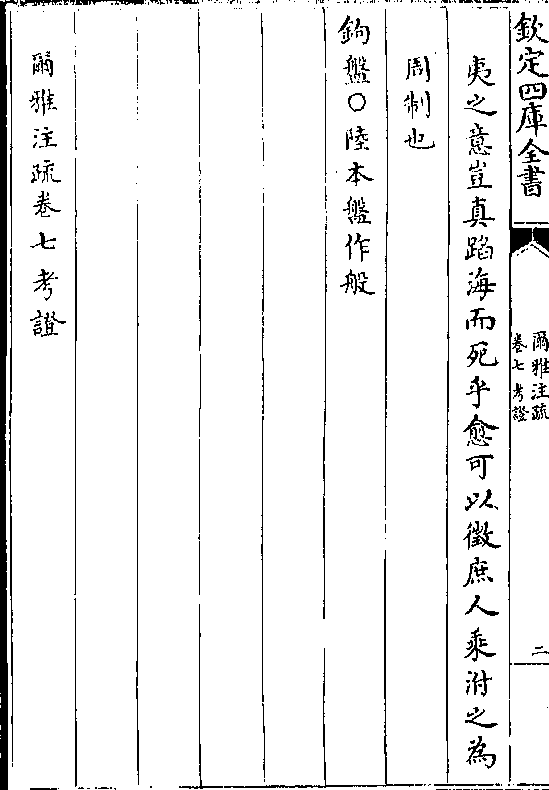 欽定四庫全書
爾雅注疏
卷七考證
二
夷之意豈真蹈海而死乎愈可以徵庶人乘泭之為
周制也
鉤盤○陸本盤作般
爾雅注疏卷七考證